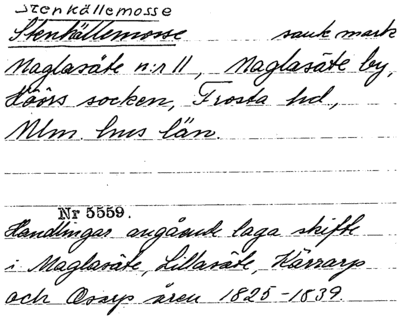 Stenkällemosse
Stenkällemosse sank mark
Maglasäte n:r 11, Maglasäte by,
Höörs socken, Frosta hd,
Mlm. hus län.
Nr 5559.
Handlingar angående laga skifte
i Maglasäte, Lillasäte, Kärrarp
och Ossyp åren 1825-1839.